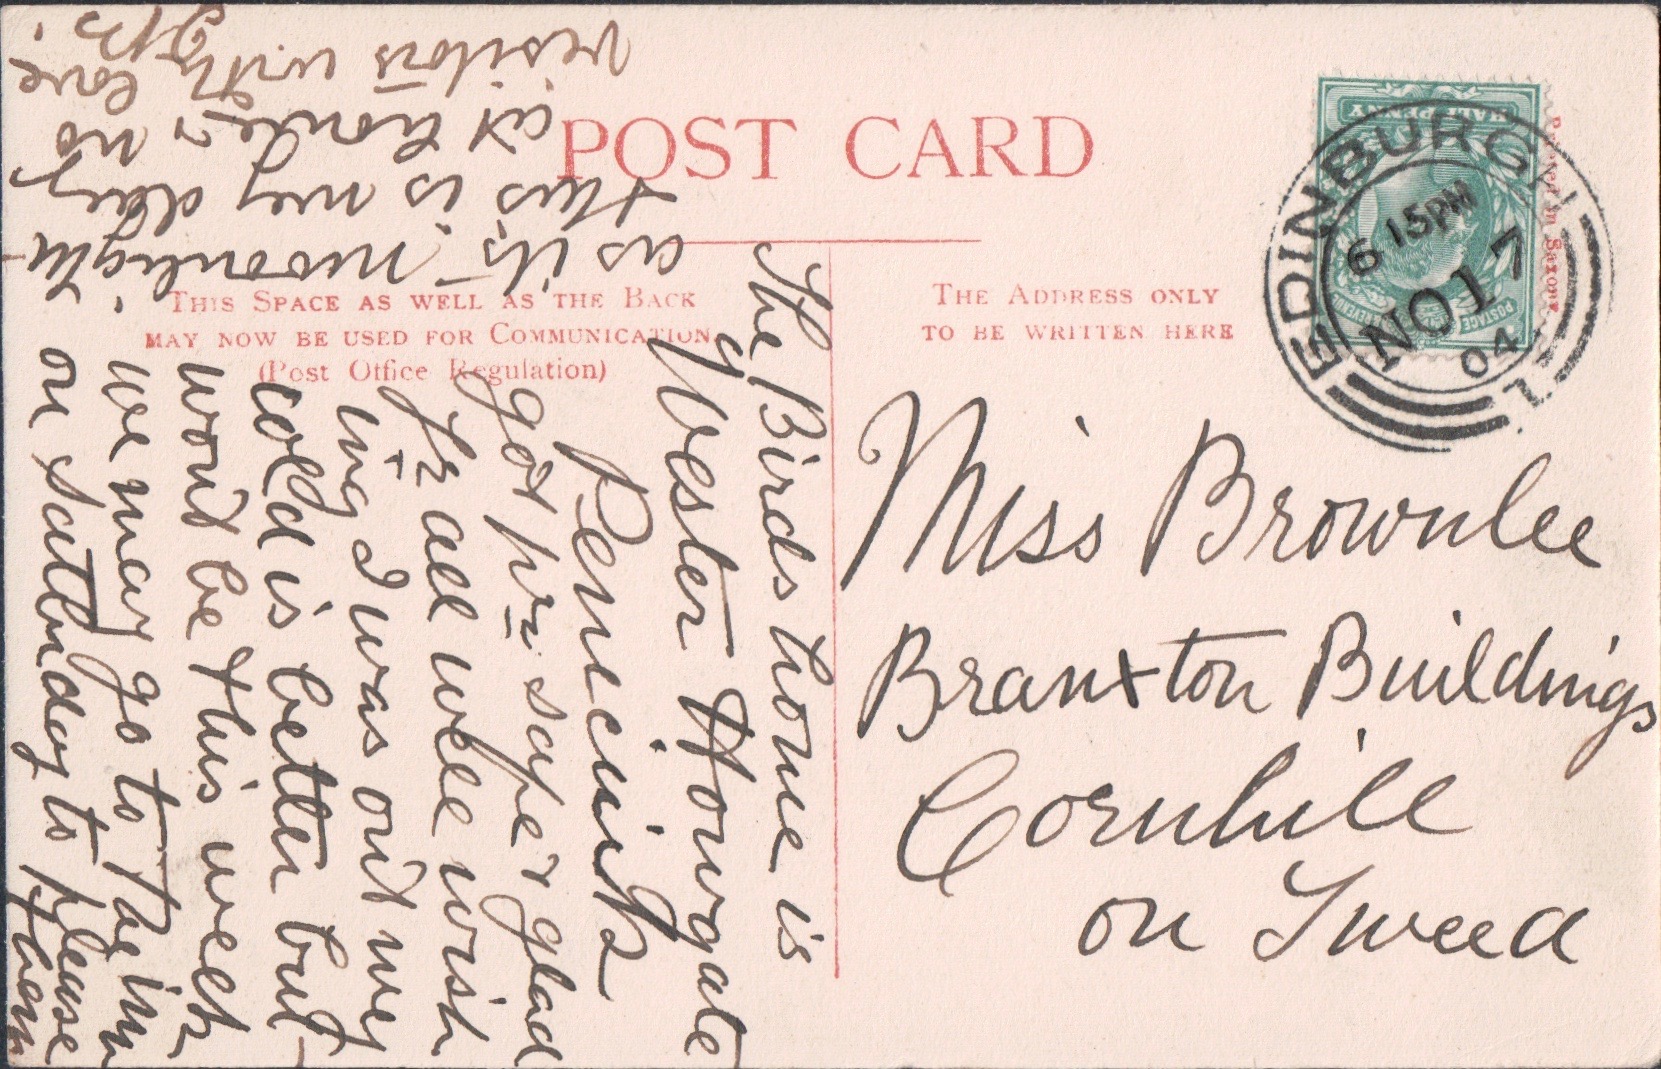 POST CARD
THIS SPACE AS WELL AS THE BACK
MAY NOW BE USED FOR COMMUNICATION
(Post Office Regulation)
THE ADDRESS ONLY
TO BE WRITTEN HERE
Printed in Saxony
HALFPENNY
POSTAGE & REVENUE
EDINBURGH
6 15PM
NO 17
04
Miss Brownlee
Branxton Buildings
Cornhill
on Tweed
The Birds home is
Wester Howgate
Penicuik
got pr safe & glad
yr all well wish
ing I was out my
cold is better but
won't be this week
we may go to
on Saturday to please
them
as its moonlight.
this is my day
at home, & no
visitors with love